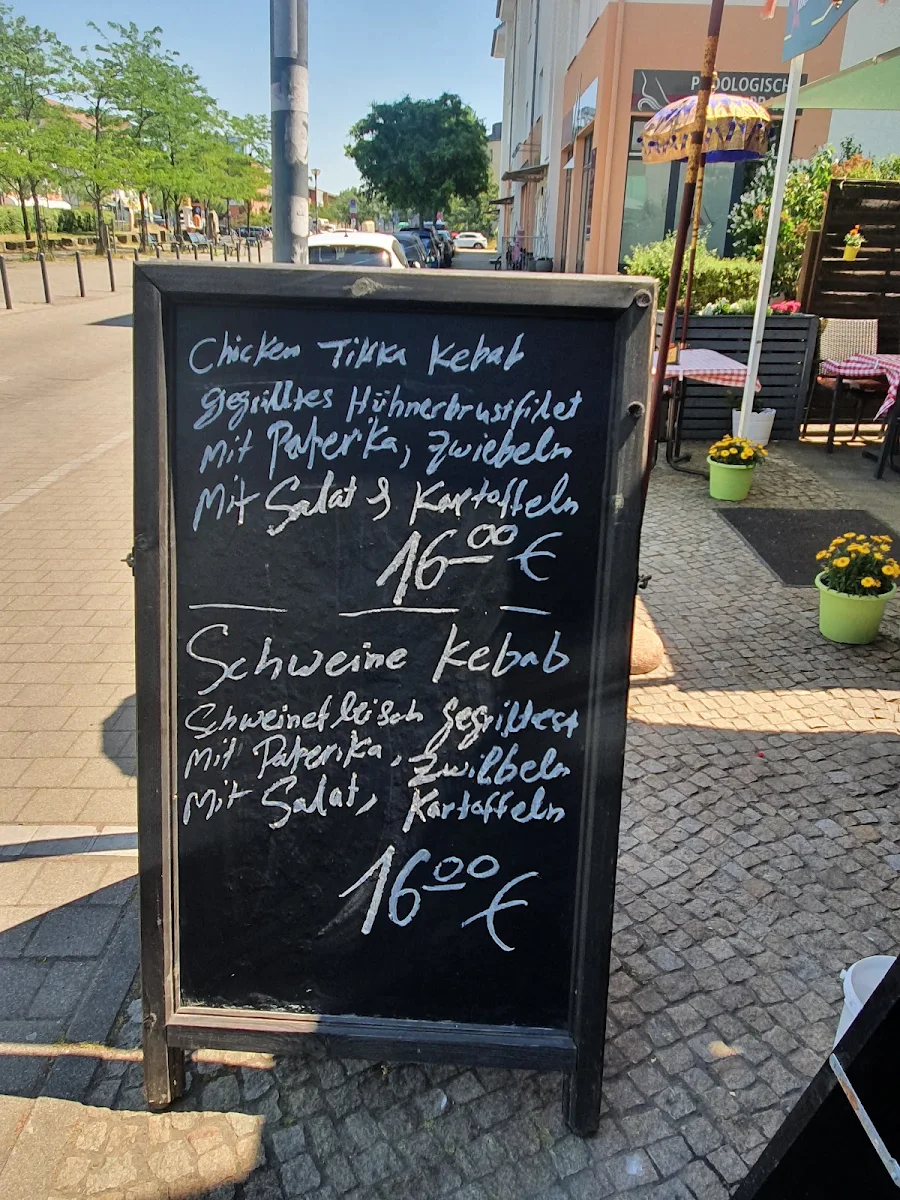 PODOLOGISCH
Chicken Tikka Kebab
gegrilltes Hühnerbrustfilet
Mit Paperika, Zwiebeln
Mit Salat & Kartoffeln
1600 €
Schweine Kebab
Schweinefleisch gegrilltest
Mit Paperika, Zwilbeln
Mit Salat, Kartoffeln
1600 €